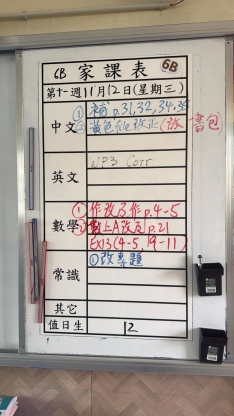 6B 家課表 6B
第十一週11月12日(星期三)
中文 ①補p.31,32,34,35
②黃色紙改正(放書包)
英文 WP3 Corr
數學 ①作改及作p.4-5
②數上A改及p.21
EX13(4-5,19-11)
常識 ①改專題
其它
值日生 12